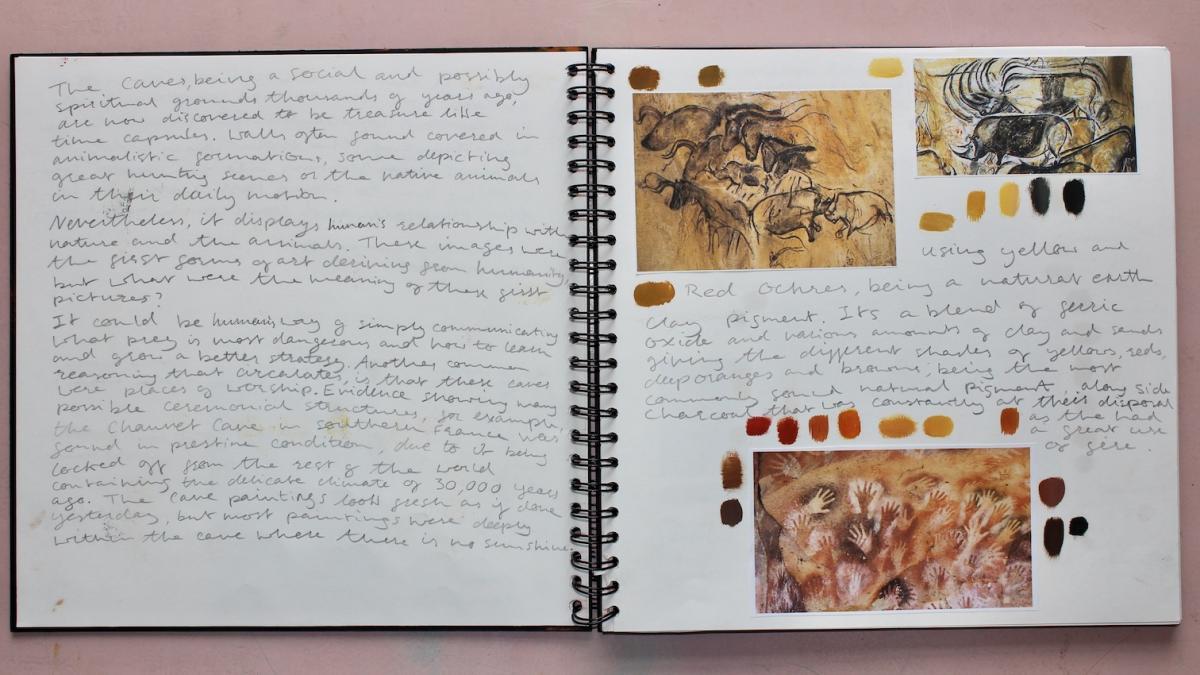 The Caves, being a social and possibly
spiritual grounds thousands of years ago,
are now discovered to be treasure like
time capsules. Walls often found covered in
animalistic formations, some depicting
great hunting scenes or the native animals
in their daily motion.
Nevertheless, it displays human's relationship with
nature and the animals. These images were
the first forms of art deriving from humanity,
but what were the meaning of these first
pictures?
It could be human's way of simply communicating
what prey is most dangerous and how to learn
and grow a better strategy. Another common
reasoning that circulates, is that these caves
were places of worship. Evidence showing many
possible ceremonial structures, for example,
the Chauvet Cave in southern France was
found in prestine condition, due to it being
locked off from the rest of the world
containing the delicate climate of 30,000 years
ago. The cave paintings look fresh as if done
yesterday, but most paintings were deeply
within the cave where there is no sunshine.
Using yellow and
Red Ochres, being a natural earth
clay pigment. It's a blend of ferric
oxide and various amounts of clay and sands
giving the different shades of yellows, reds,
deep oranges and browns; being the most
commonly found natural pigment, along side
charcoal that was constantly at their disposal
as the had
a great use
of fire.